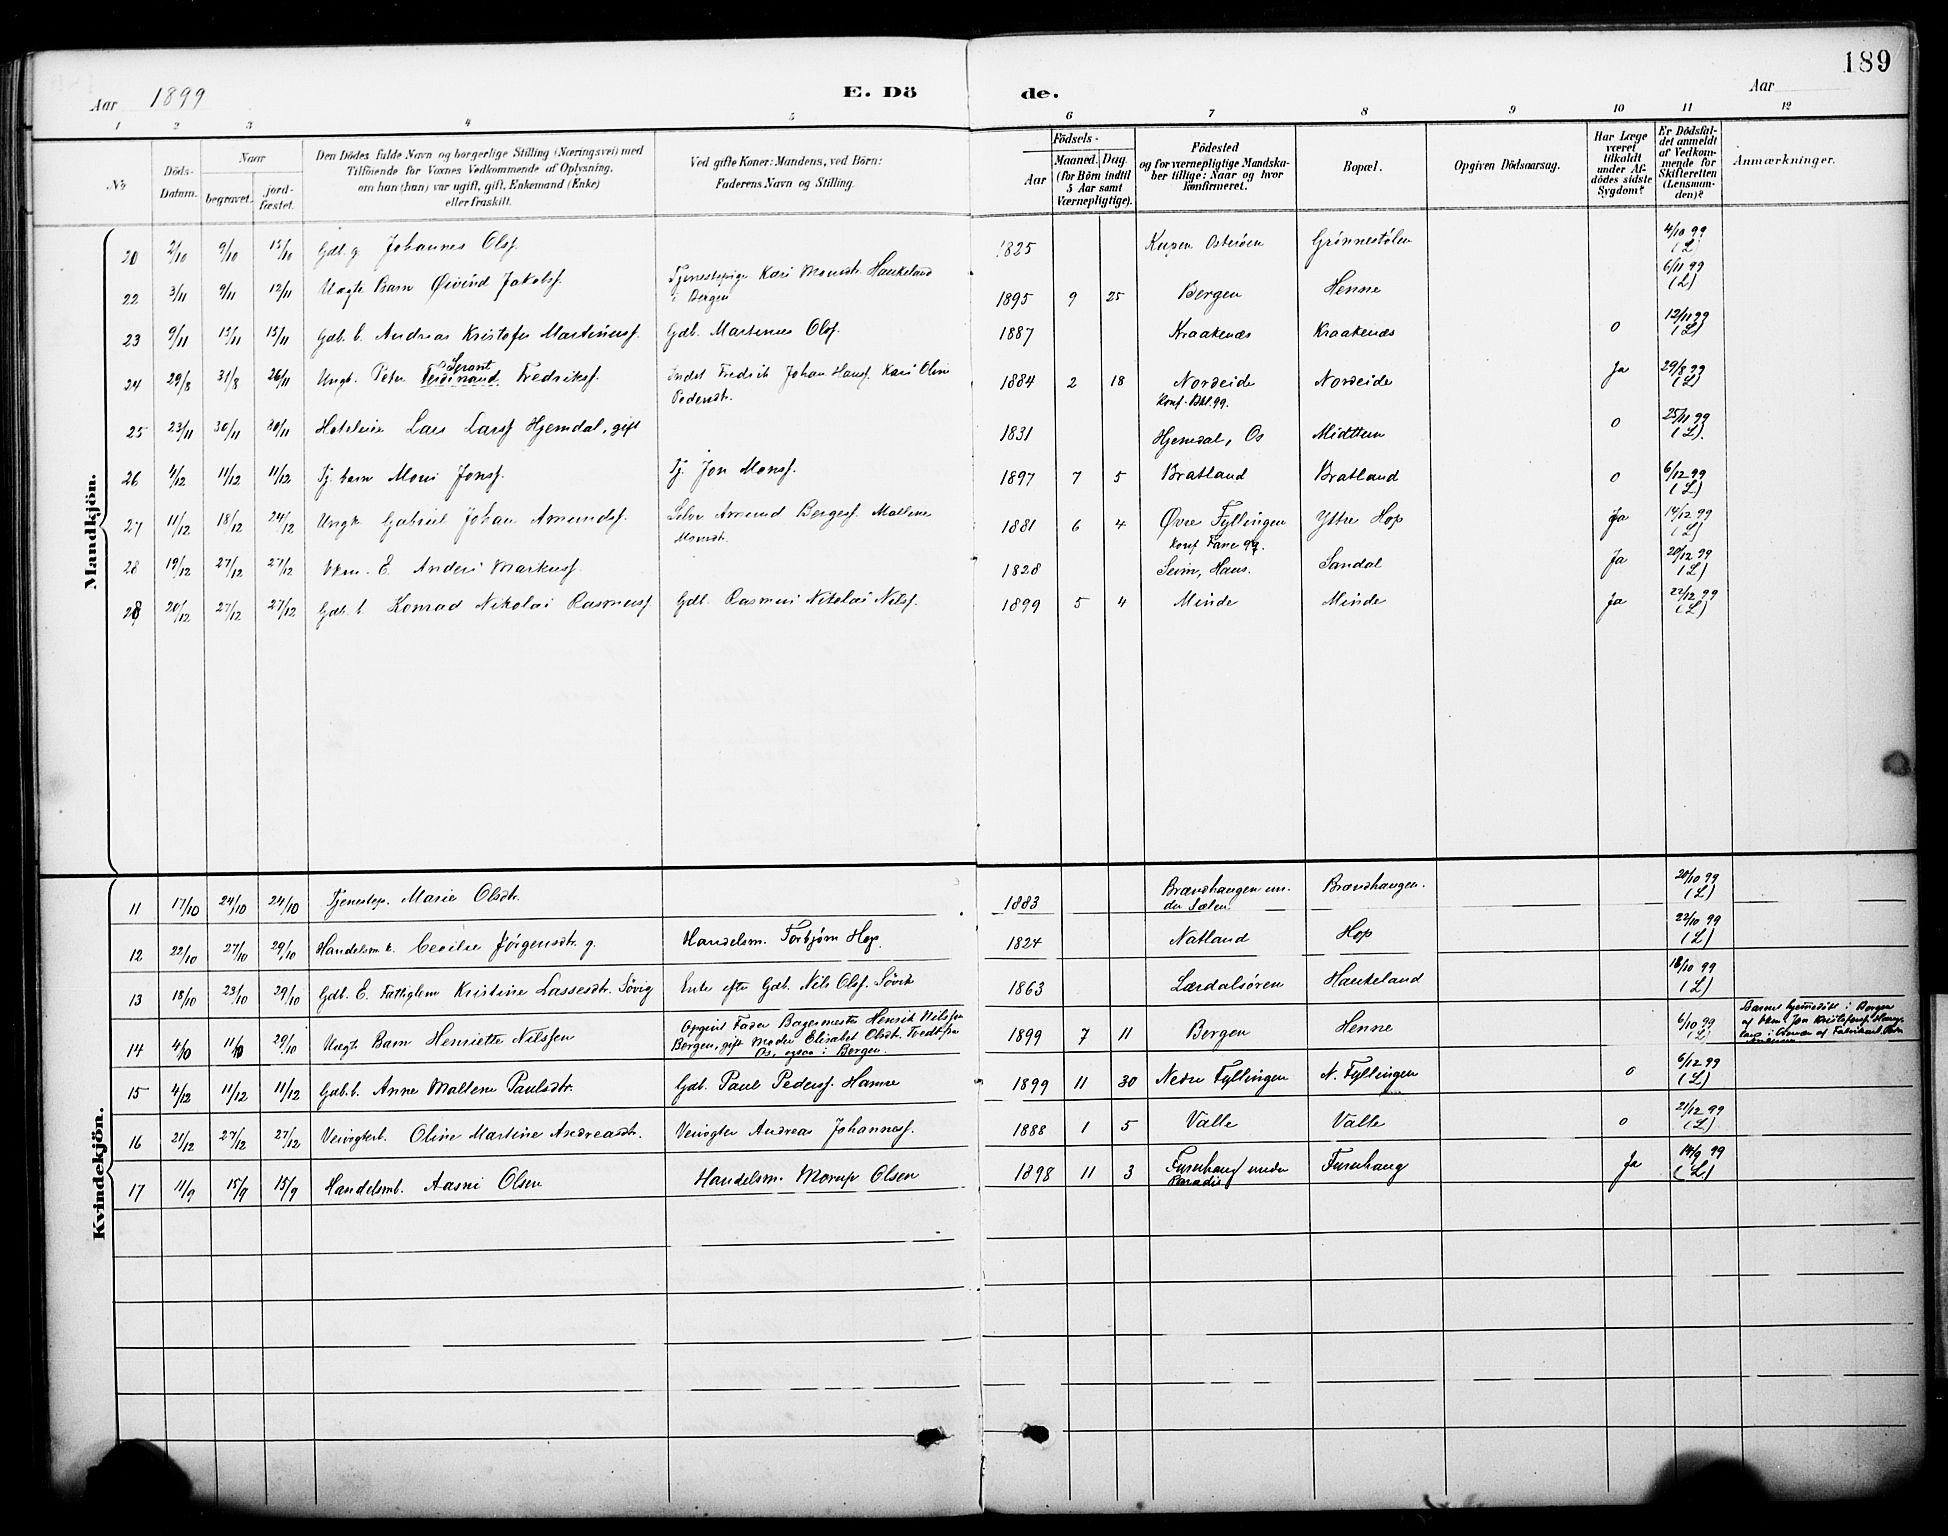 189
Aar 1899 E. Dö de. Aar
1 2 3 4 5 6 7 8 9 10 11 12
No Döds-Datum. Naar begravet. jord-fæstet. Den Dödes fulde Navn og borgerlige Stilling (Næringsvei) med Tilföiende for Voxnes Vedkommende af Oplysning, om han (hun) var ugift, gift, Enkemand (Enke) eller fraskilt. Ved gifte Koner: Mandens, ved Börn: Faderens Navn og Stilling. Födsels- Aar Maaned. Dag. (for Börn indtil 5 Aar samt Værnepligtige). Födested og for værnepligtige Mandskaber tillige: Naar og hvor konfirmeret. Bopæl. Opgiven Dödsaarsag. Har Læge været tilkaldt under Afdödes sidste Sygdom? Er Dödsfaldet anmeldt af Vedkommende for Skifteretten (Lensmanden)? Anmærkninger.
Mandkjön.
20 2/10 9/10 15/10 Gdb. g. Johannes Olsf. 1825 Osterøen Grönnestølen 4/10 99 (L)
22 3/11 9/11 12/11 Uægte Barn Øivind Jakobsf. Tjenestepige Kari Monsdtr. Haukeland i Bergen 1895 9 25 Bergen Henne 6/11 99 (L)
23 9/11 15/11 15/11 Gdb. b. Andreas Kristofer Martinusf. Gdb. Martinus Olsf. 1887 Kraakenæs Kraakenæs o 12/11 99 (L)
24 29/8 31/8 26/11 Ungk. Peter Ferdinand Fredriksf. Inderst Fredrik Johan Hansf. Kari Oline Pedersdtr. 1884 2 18 Nordeide Nordeide Ja 29/8 99 (L)
25 23/11 30/11 30/11 Lars Larsf Hjemdal, gift 1831 Hjemdal, Os Midttun o 25/11 99 (L).
26 4/12 11/12 11/12 Tj. barn Mons Jonsf. Tj. Jon Monsf. 1897 7 5 Bratland Bratland o 6/12 99 (L)
27 11/12 18/12 24/12 Ungk. Gabriel Johan Amundsf. Selve Amund Bergesf. Mallene Monsdtr. 1881 6 4 Øvre Fyllingen Konf Fane 97. Ytre Hop Ja 14/12 99 (L)
28 19/12 27/12 27/12 E. Anders Markusf. 1828 Seim, Haus. Sandal Ja 20/12 99 (L)
28 20/12 27/12 27/12 Gdb. b. Konrad Nikolai Rasmusf Gdb. Rasmus Nikolai Nilsf. 1899 5 4 Minde Minde Ja 22/12 99 (L)
Kvindekjön.
11 17/10 24/10 24/10 Tjenestep. Marie Olsdtr. 1883 Brændhaugen under Sælen Brændhaugen. 20/10 99 (L)
12 22/10 27/10 29/10 Handelsm. k. Cecilie Jörgensdtr. g. Handelsm. Torbjørn Hop. 1824 Natland Hop 22/10 99 (L)
13 18/10 23/10 29/10 Gdb. E. Fattiglem Kristine Lassesdtr. Søvig Enke efter Gdb. Nils Olsf. Søvik 1863 Lærdalsören Haukeland 18/10 99 (L)
14 4/10 11/10 29/10 Uægte Barn Henriette Nilssen Opgivet Fader Bagermester Henrik Nilssen Bergen, gift Moder Elisabet Olsdtr. Tvedt fra Os, ogsaa i Bergen. 1899 7 11 Bergen Henne 6/10 99 (L)
15 4/12 11/12 11/12 Gdb. b. Anne Mallene Paulsdtr. Gdb. Paul Pedersf. Hamre 1899 11 30 Nedre Fyllingen N. Fyllingen o 6/12 99 (L)
16 21/12 27/12 27/12 Veivogterb. Oline Martine Andreasdtr. Veivogter Andreas Johannesf. 1888 1 5 Valle Valle o 21/12 99 (L)
17 11/9 15/9 15/9 Handelsmb. Aasni Olsen Handelsm. Olsen 1898 11 3 Furuhaug under Paradis Furuhaug Ja 14/9 99 (L)